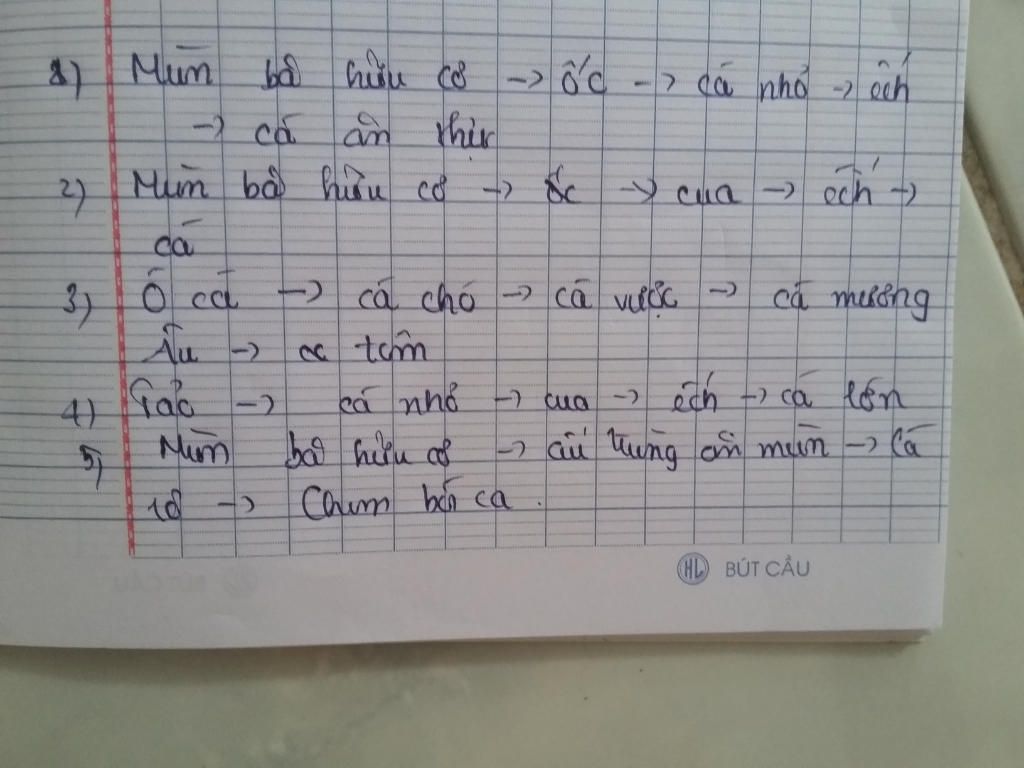 1) Mùn bã hữu cơ → ốc → cá nhỏ → ếch
→ cá ăn thịt
2) Mùn bã hữu cơ → ốc → cua → ếch →
cá
3) Ố cá → cá chó → cá vược → cá mương
Âu → tôm
4) Tảo → cá nhỏ → cua → ếch → cá lớn
5) Mùn bã hữu cơ → ấu trùng ăn mùn → Cá
rô → Chim bói ca.
HL BÚT CẦU